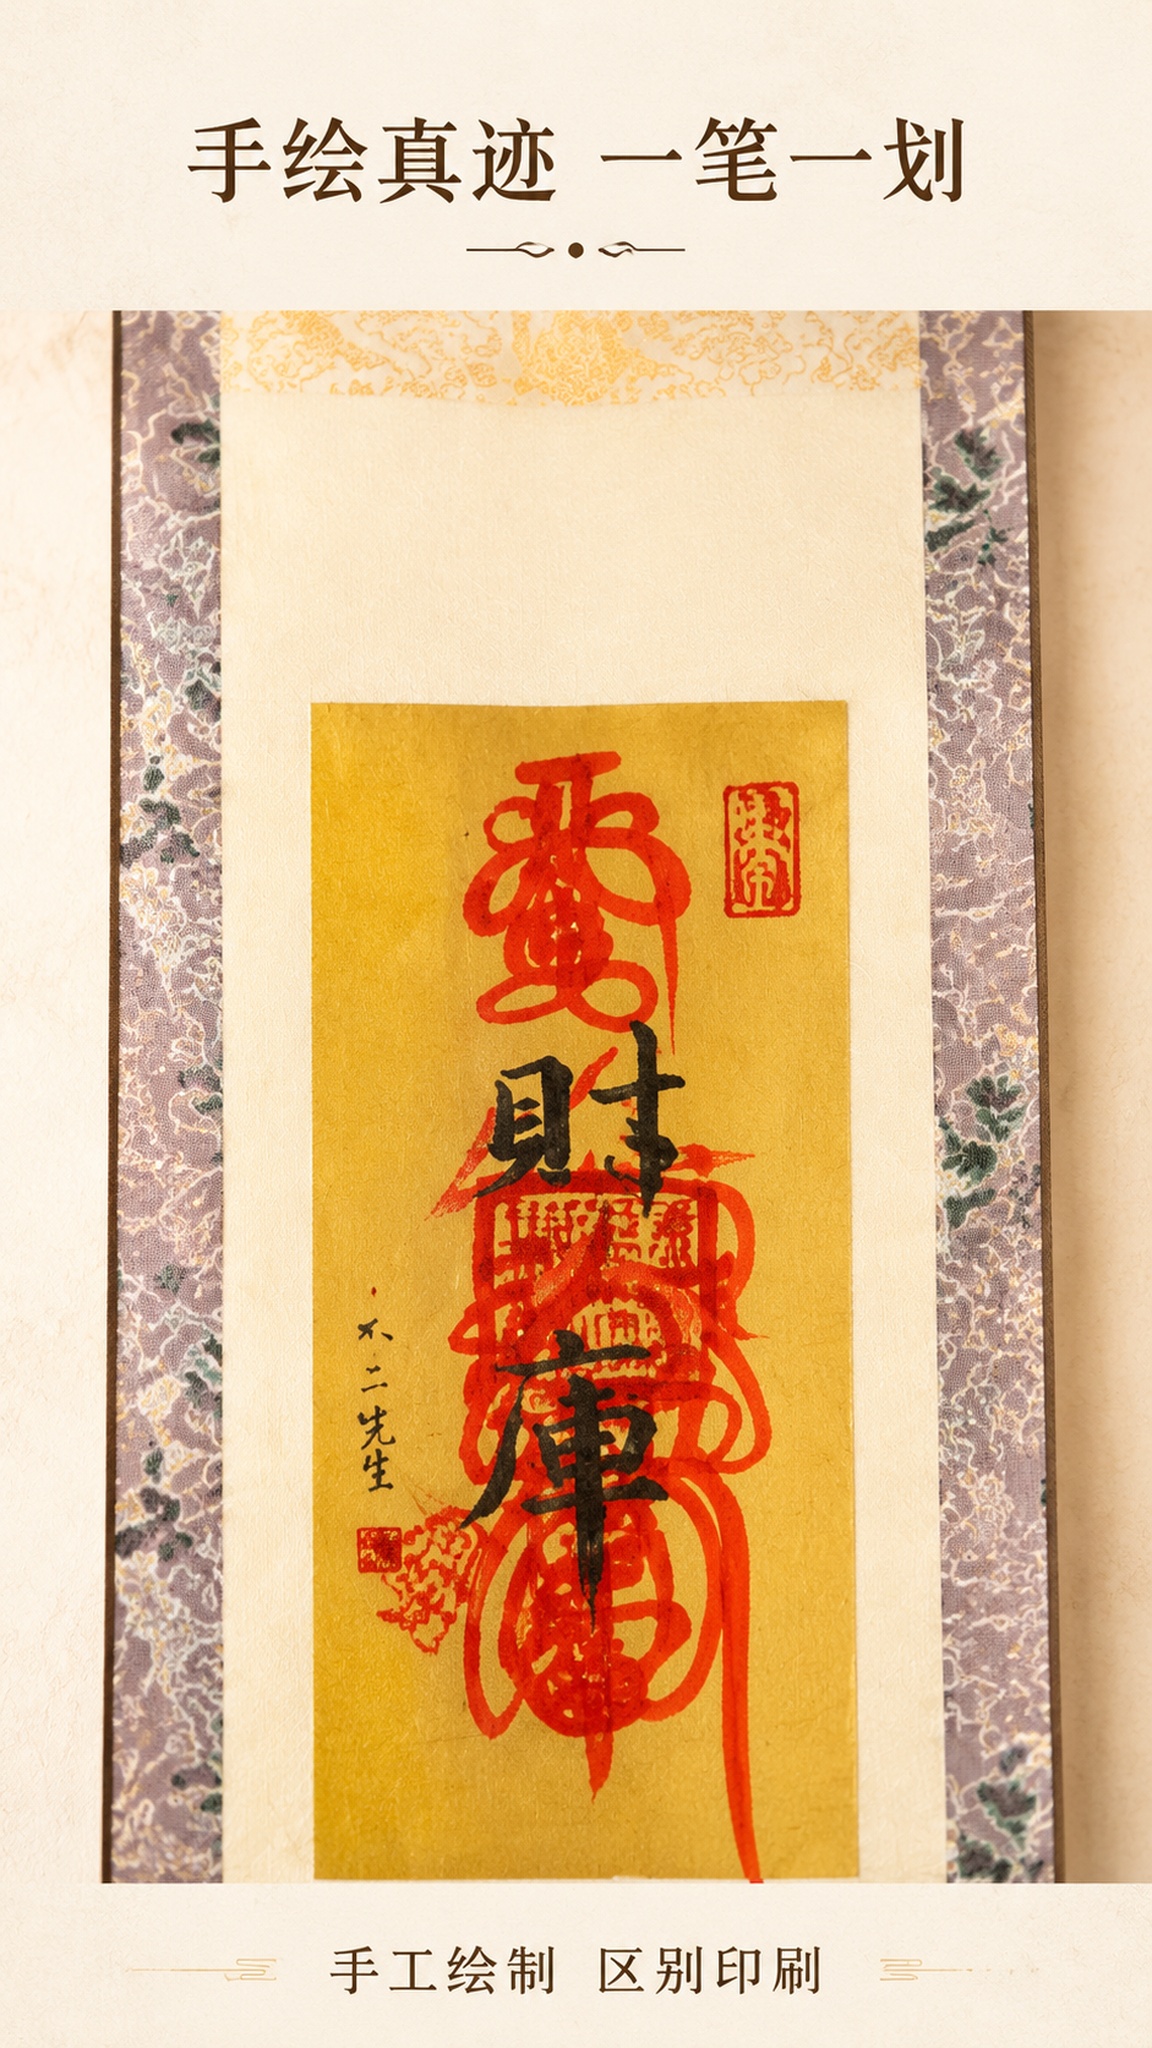 手绘真迹 一笔一划
財
庫
不二先生
手工绘制 区别印刷